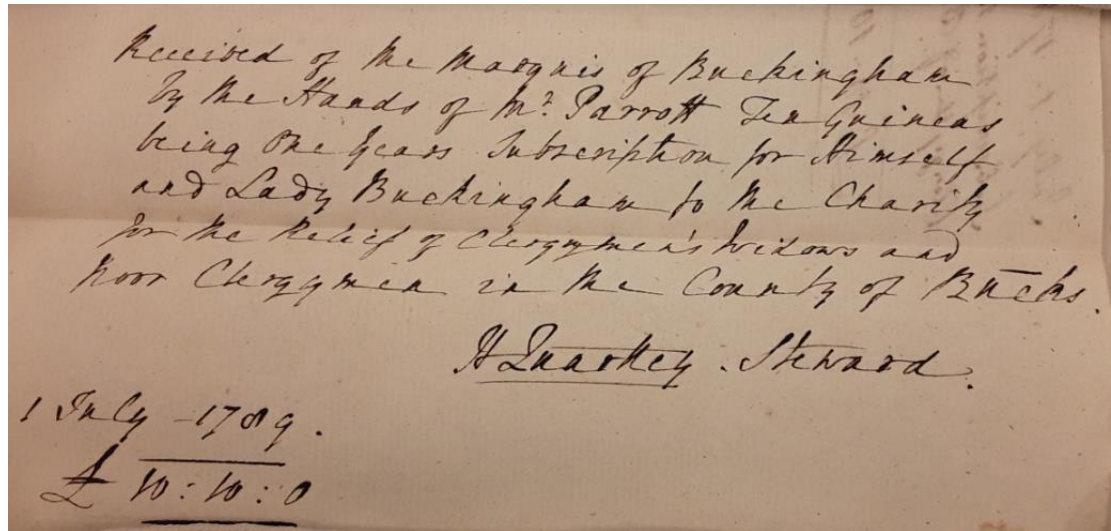 Received of the Marquis of Buckingham
by the Hands of Mr. Parrott Ten Guineas
being One Years Subscription for Himself
and Lady Buckingham to the Charity
for the Relief of Clergymen's Widows and
Poor Clergymen in the County of Bucks.
H Quartley. Steward.
1 July - 1789.
£ 10 : 10 : 0